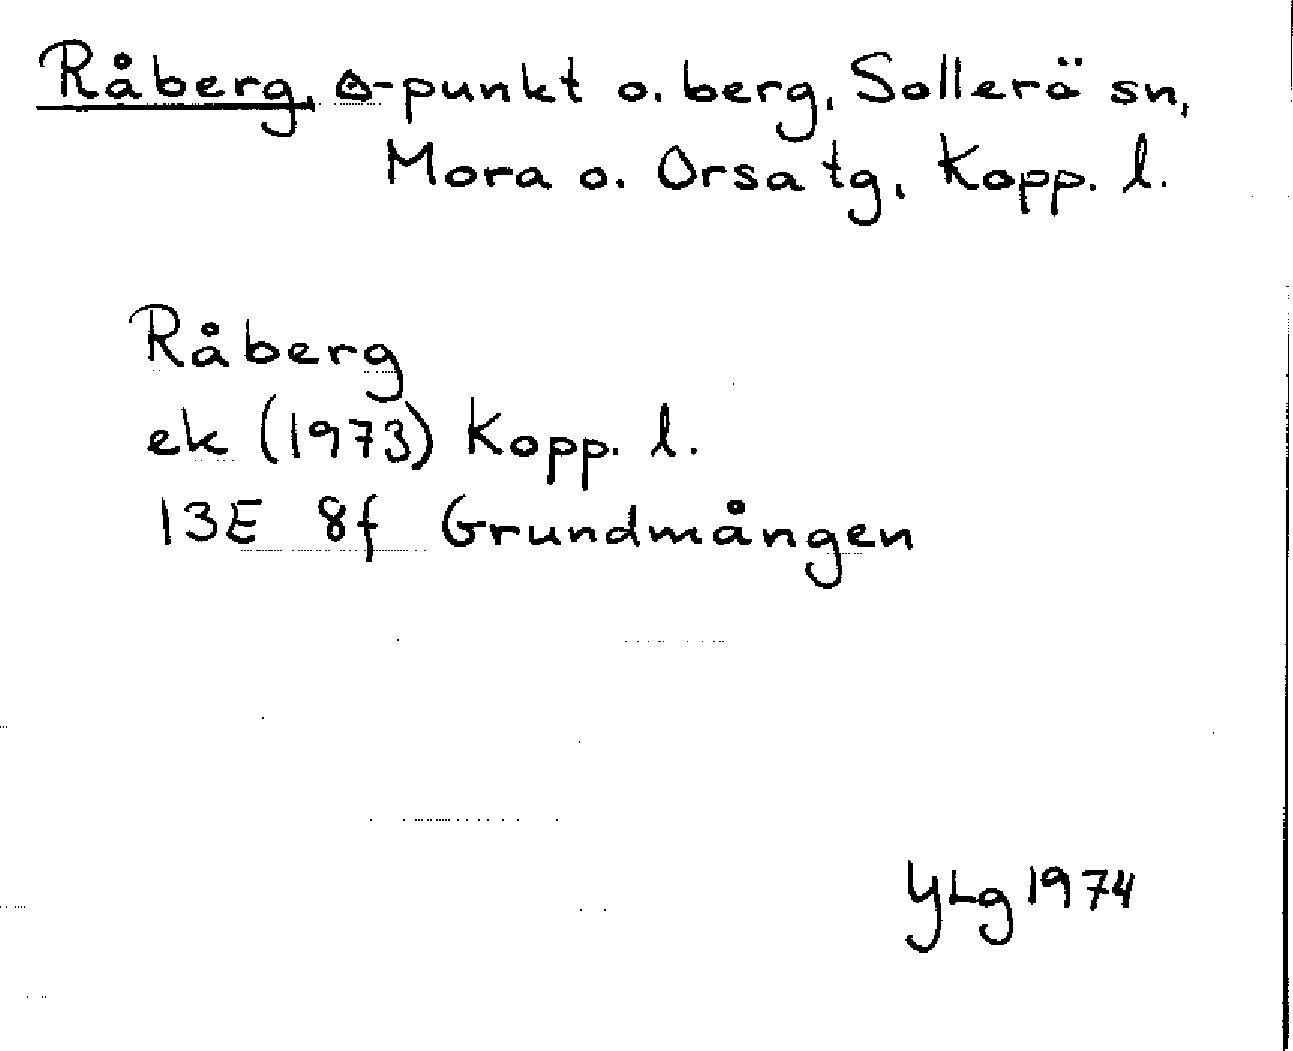 Råberg, △-punkt o. berg, Sollerö sn,
Mora o. Orsa tg, Kopp. l.
Råberg
ek (1973) Kopp. l.
13E 8f Grundmången
YLg 1974